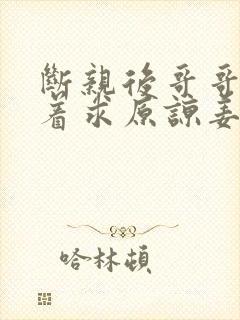 斷親後哥哥
著求原諒姜
哈林頓